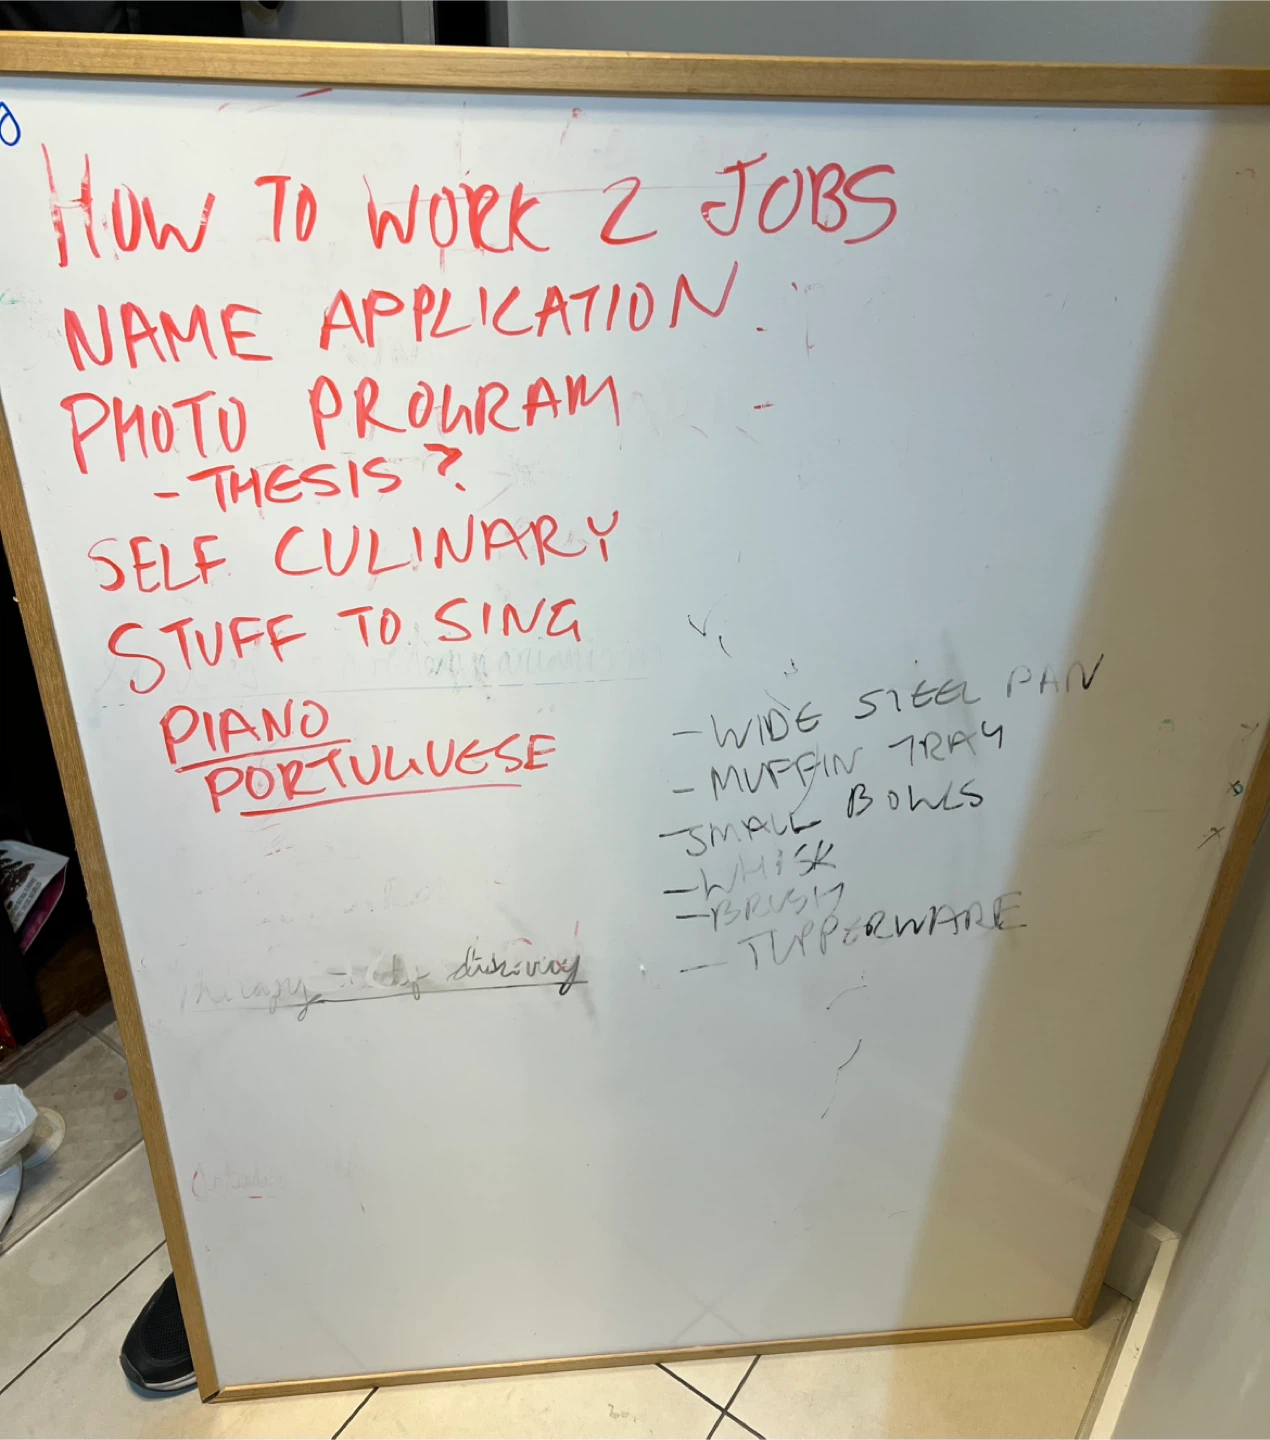 HOW TO WORK 2 JOBS
NAME APPLICATION
PHOTO PROGRAM
- THESIS?
SELF CULINARY
STUFF TO SING
PIANO
PORTUGUESE
- WIDE STEEL PAN
- MUFFIN TRAY
- SMALL BOWLS
- WHISK
- BRUSH
- TUPPERWARE